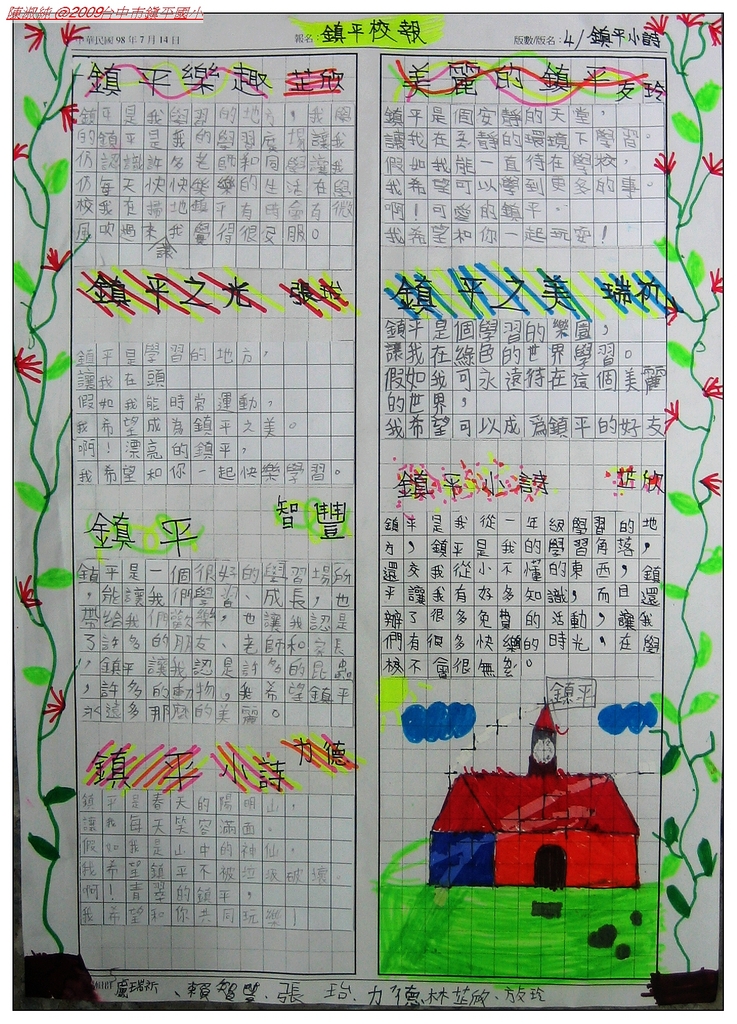 陳淑純@2009台中市鎮平國小
中華民國98年7月14日
報名：鎮平校報
版數/版名：4/鎮平小詩
鎮平樂趣 芷欣
鎮平是我學習的地方，我學
的鎮平是我的學習廣場讓我
們認識許多老師和同學讓我
們每天快快樂樂的生活在學
校我在掃地鎮平有時會有微
風吹過來我覺得很安服。
讓
鎮平之光 張珆
鎮平是學習的地方，
讓我在頭
假如我能時常運動，
我希望成為鎮平之美。
啊！漂亮的鎮平，
我希望和你一起快樂學習。
鎮平 智豐
鎮平是一個很好的學習場所
，能讓我們學習、成長，也
帶給我們歡樂，也讓我認是
了許多的朋友、老師和家長
，鎮平讓我認是許多的昆蟲
，許多的動物，我希望鎮平
永遠多那麼的美麗。
鎮平小詩 力德
鎮平是春天的陽明山，
讓我每天笑容滿面。
假如我是山中的神仙，
我希望鎮平不被垃圾破壞。
啊！青翠的鎮平，
我希望和你共同玩樂！
美麗的鎮平 友玲
鎮平是個安靜的天堂，
讓我在安靜的環境下學習。
假如我能一直待在學校，
我希望可以學到更多的事。
啊！可愛的鎮平，
我希望和你一起玩耍！
鎮平之美 瑞祈
鎮平是個學習的樂園，
讓我在綠色的世界學習。
假如我可永遠待在這個美麗
的世界，
我希望可以成為鎮平的好友
鎮平小詩 芷欣
鎮平是我從一年級學習的地
方，鎮平是我的學習角落，
還交我從小不懂的東西，鎮
平讓我有好多知識，而且還
辦了很多免費的活動，讓我
們有很多快樂的時光，在學
校不會很無聊。
鎮平
盧瑞祈、賴智豐、張珆、力德、林芷欣、友玲